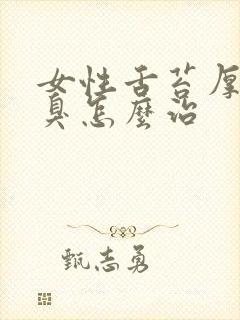 女性舌苔厚
臭怎麼治
甄志勇